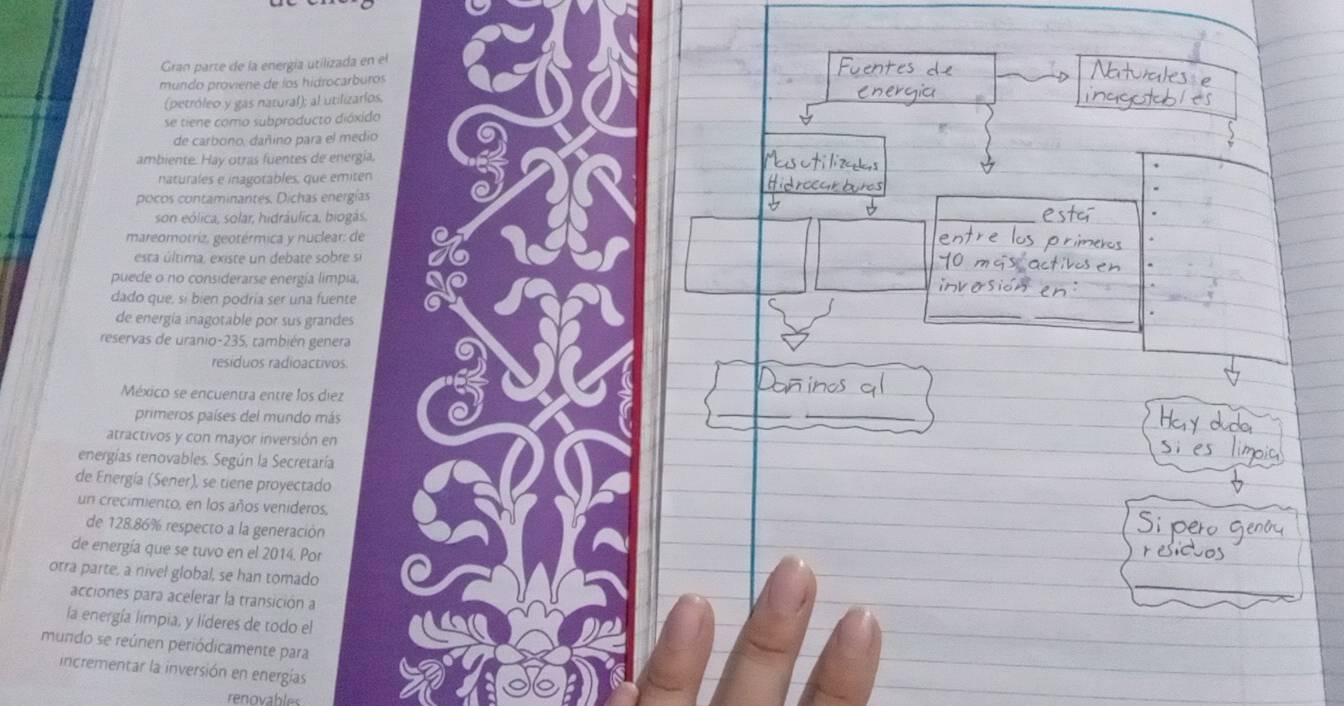 Gran parte de la energía utilizada en el
mundo proviene de los hidrocarburos
(petróleo y gas natural); al utilizarlos,
se tiene como subproducto dióxido
de carbono, dañino para el medio
ambiente. Hay otras fuentes de energía,
naturales e inagotables, que emiten
pocos contaminantes. Dichas energías
son eólica, solar, hidráulica, biogás,
mareomotriz, geotérmica y nuclear; de
esta última, existe un debate sobre si
puede o no considerarse energía limpia,
dado que, si bien podría ser una fuente
de energía inagotable por sus grandes
reservas de uranio-235, también genera
residuos radioactivos.
México se encuentra entre los diez
primeros países del mundo más
atractivos y con mayor inversión en
energías renovables. Según la Secretaría
de Energía (Sener), se tiene proyectado
un crecimiento, en los años venideros,
de 128.86% respecto a la generación
de energía que se tuvo en el 2014. Por
otra parte, a nivel global, se han tomado
acciones para acelerar la transición a
la energía limpia, y líderes de todo el
mundo se reúnen periódicamente para
incrementar la inversión en energías
renovables
Fuentes de
energia
Naturales e
inagotables
Mas utilizadas
Hidrocarburos
__________ está
entre los primeros
10 más activos en
inversión en:
__________ __________
Dañinos al
__________ __________
Hay duda
si es limpia
Si pero genera
residuos
__________